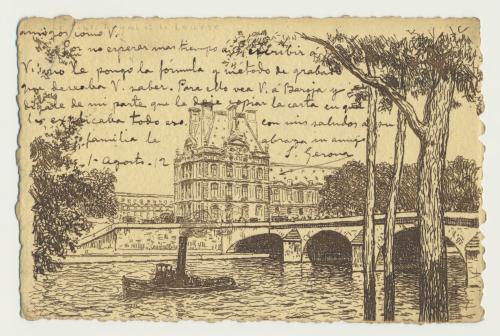 amigos como V.
Por no esperar mas tiempo a escribir á
V. no le pongo la fórmula y método de grabado
que deseaba V. saber. Para ello vea V. á Baroja y
dígale de mi parte que le deje copiar la carta en que
le explicaba todo eso. con mis saludos a su
familia le abraza su amigo
1 - Agosto - 2 S. Gerona